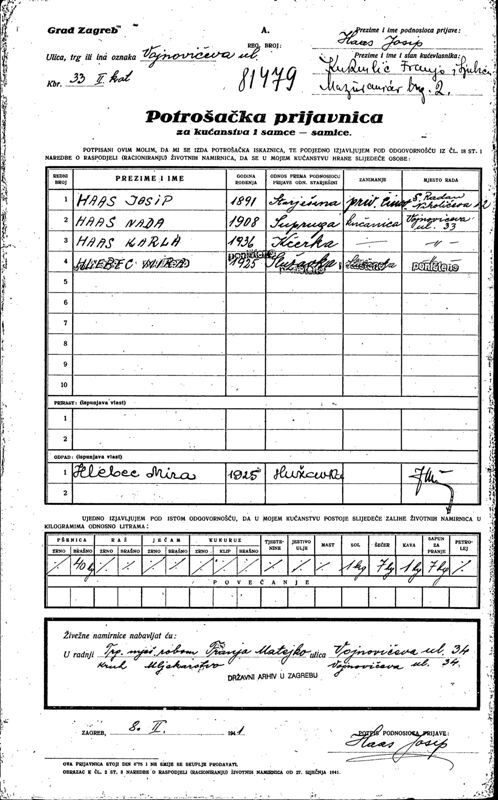 Grad Zagreb
A.
Prezime i ime podnosioca prijave:
Haas Josip
Ulica, trg ili ina oznaka Vojnovićeva ul.
REG. BROJ:
81479
Prezime i ime kućevlasnika:
Kukuljić Franjo i
Kbr. 33 II kat
Mažuranićev trg. 2.
Potrošačka prijavnica
za kućanstva i samce — samice.
POTPISANI OVIM MOLIM, DA MI SE IZDA POTROŠAČKA ISKAZNICA, TE PODJEDNO IZJAVLJUJEM POD ODGOVORNOŠĆU IZ ČL. 18 ST. 1
NAREDBE O RASPODJELI (RACIONIRANJU) ŽIVOTNIH NAMIRNICA, DA SE U MOJEM KUĆANSTVU HRANE SLIJEDEĆE OSOBE:
REDNI BROJ PREZIME I IME GODINA ROĐENJA ODNOS PREMA PODNOSIOCU PRIJAVE ODN. STARJEŠINI ZANIMANJE MJESTO RADA
1 HAAS JOSIP 1891 Starješina priv. čin. Nikolićeva 12
2 HAAS NADA 1908 Supruga kućanica Vojnovićeva ul. 33
3 HAAS KARLA 1936 Kćerka — -"-
4 HLEBEC MIRA 1925 Služavka poništeno
5
6
7
8
9
10
PRIRAST: (ispunjava vlast)
1
2
OTPAD: (ispunjava vlast)
1 Hlebec Mira 1925 Služavka
2
UJEDNO IZJAVLJUJEM POD ISTOM ODGOVORNOŠĆU, DA U MOJEM KUĆANSTVU POSTOJE SLIJEDEĆE ZALIHE ŽIVOTNIH NAMIRNICA U
KILOGRAMIMA ODNOSNO LITRAMA:
PŠENICA RAŽ JEČAM KUKURUZ TJESTENINE JESTIVO ULJE MAST SOL ŠEĆER KAVA SAPUN ZA PRANJE PETROLEJ
ZRNO BRAŠNO ZRNO BRAŠNO ZRNO BRAŠNO ZRNO KLIP BRAŠNO
% 40 kg % % % % % % % % % % 1 kg 7 kg 1 kg 7 kg %
POVEĆANJE
Živežne namirnice nabavljat ću:
U radnji Trg. mješ robom Franja Matejko ulica Vojnovićeva ul. 34
Kruh Mljekarstvo Vojnovićeva ul. 34.
DRŽAVNI ARHIV U ZAGREBU
ZAGREB, 8. II. 1941
POTPIS PODNOSIOCA PRIJAVE:
Haas Josip
OVA PRIJAVNICA STOJI DIN 0'75 I NE SMIJE SE SKUPLJE PRODAVATI.
OBRAZAC K ČL. 2 ST. 3 NAREDBE O RASPODJELI (RACIONIRANJU) ŽIVOTNIH NAMIRNICA OD 27. SIJEČNJA 1941.